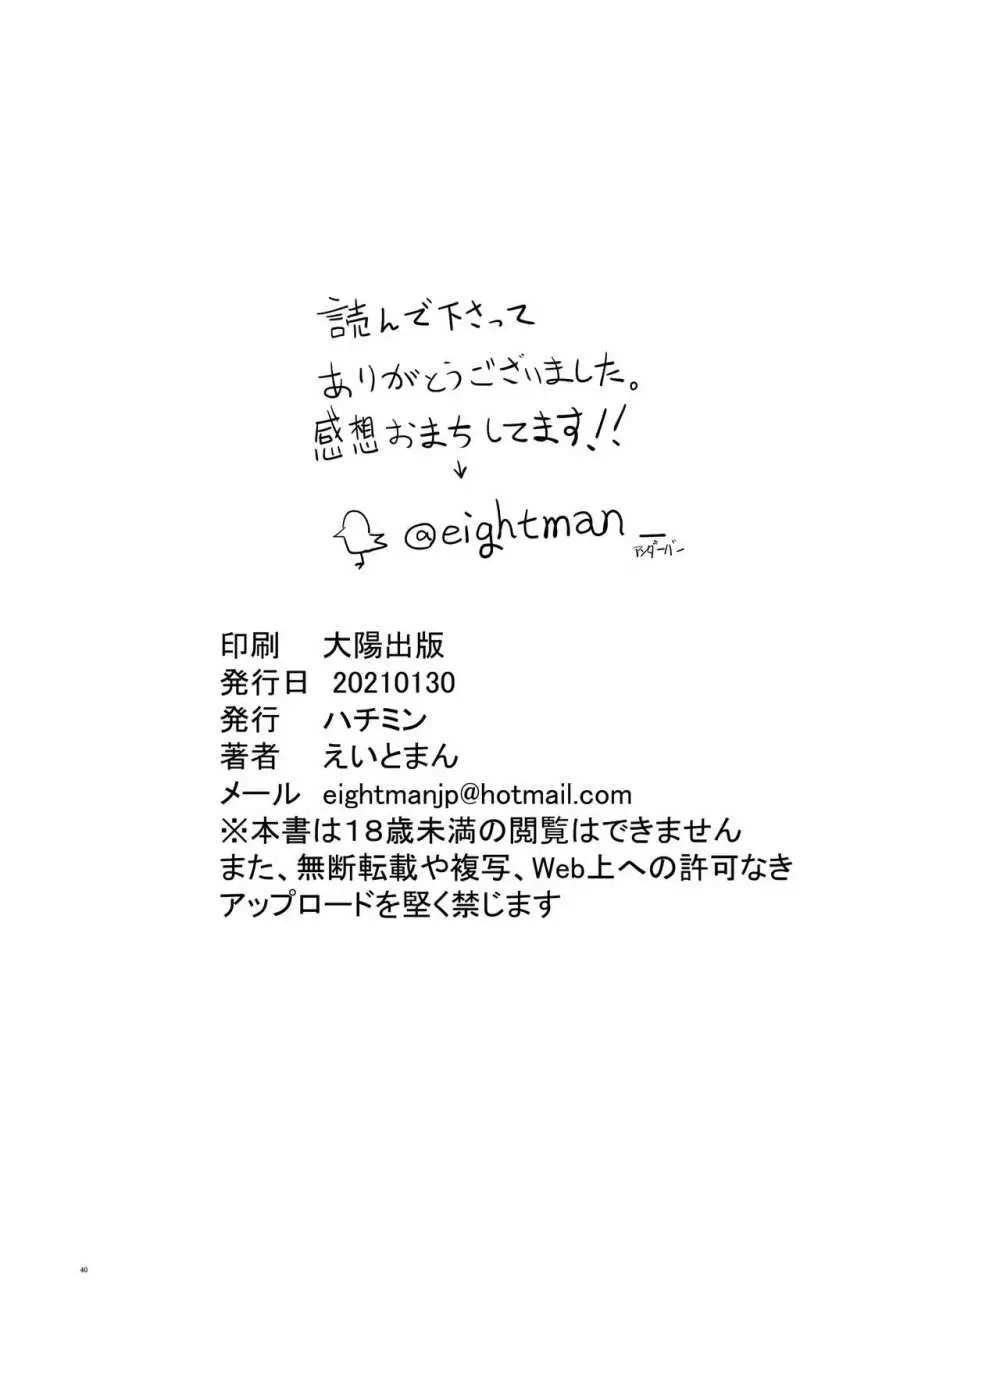 読んで下さって
ありがとうございました。
感想おまちしてます!!
↓
@eightman_
アンダーバー
印刷 大陽出版
発行日 20210130
発行 ハチミン
著者 えいとまん
メール eightmanjp@hotmail.com
※本書は18歳未満の閲覧はできません
また、無断転載や複写、Web上への許可なき
アップロードを堅く禁じます
40